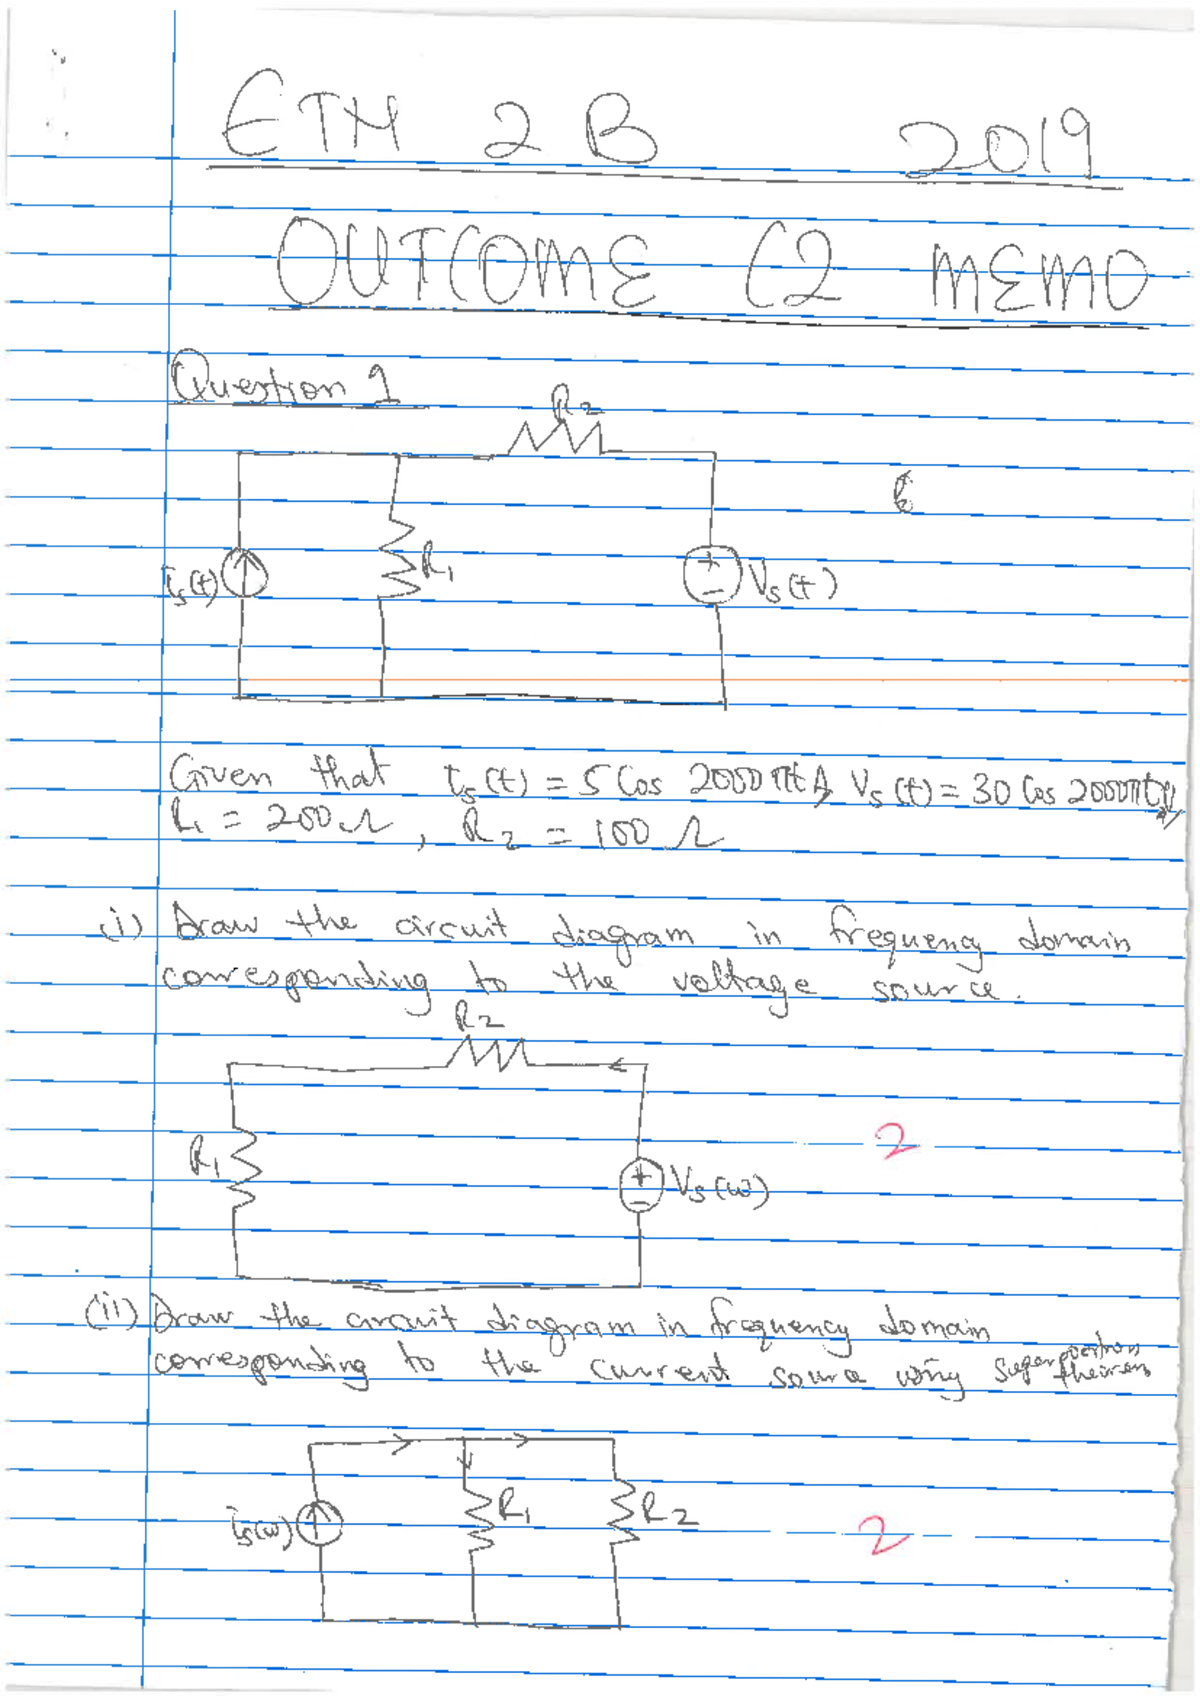 ETM 2B 2019
OUTCOME C2 MEMO
Question 1
R2
is(t)
R1
+
−
Vs(t)
Given that is(t) = 5 Cos 2000πt A, Vs(t) = 30 Cos 2000πt V,
R1 = 200 Ω , R2 = 100 Ω
(i) Draw the circuit diagram in frequency domain
corresponding to the voltage source.
R2
R1
+
−
Vs(ω)
2
(ii) Draw the circuit diagram in frequency domain
corresponding to the current source using superposition theorem
is(ω)
R1
R2
2